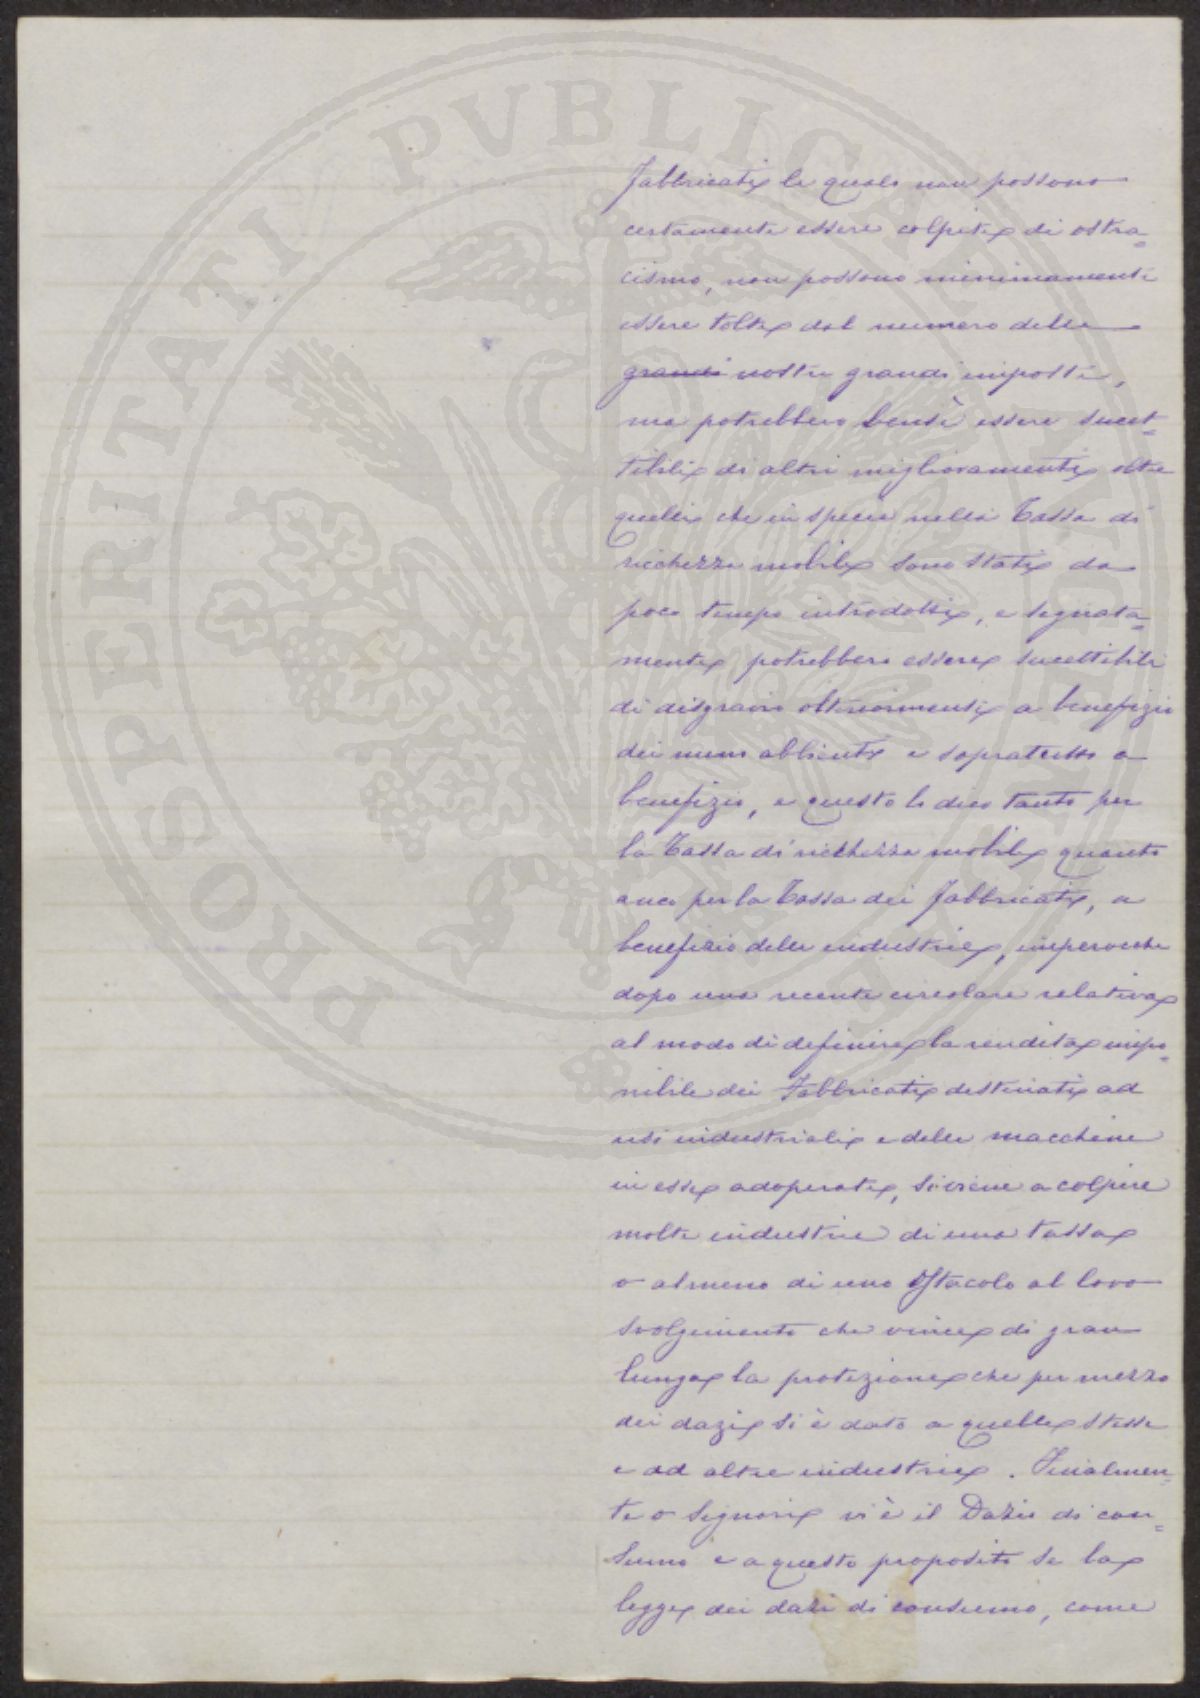 PROSPERITATI PUBLICAE
fabbricati le quali non possono
certamente essere colpite di ostra=
cismo, non possono minimamente
essere tolte dal numero delle
grandi nostre grandi imposte,
ma potrebbero bensì essere sucet=
tibili di altri miglioramenti oltre
quelli che in specie nella Tassa di
ricchezza mobile sono stati da
poco tempo introdotti, e segnata=
mente potrebbero essere sucettibili
di disgravio ulteriormente a benefizio
dei meno abbienti e sopratutto a
benefizio, e questo lo dico tanto per
la Tassa di ricchezza mobile quanto
anco per la Tassa dei fabbricati, a
benefizio delle industrie, imperocche
dopo una recente circolare relativa
al modo di definire la rendita impo=
nibile dei Fabbricati destinati ad
usi industriali e delle macchine
in essi adoperate, si viene a colpire
molte industrie di una tassa
o almeno di uno ostacolo al loro
svolgimento che vince di gran
lunga la protezione che per mezzo
dei dazi si è dato a quelle stesse
e ad altre industrie. Finalmen=
te o Signori vi è il Dazio di con=
sumo e a questo proposito se la
legge dei dazi di consumo, come